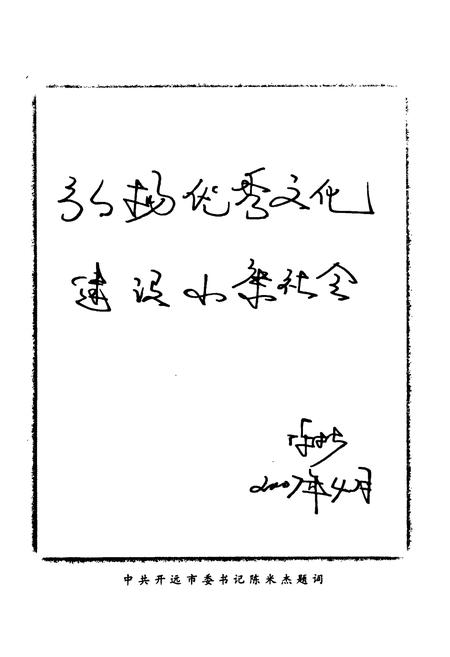 弘扬优秀文化
建设小康社会
2007年4月
中共开远市委书记陈米杰题词